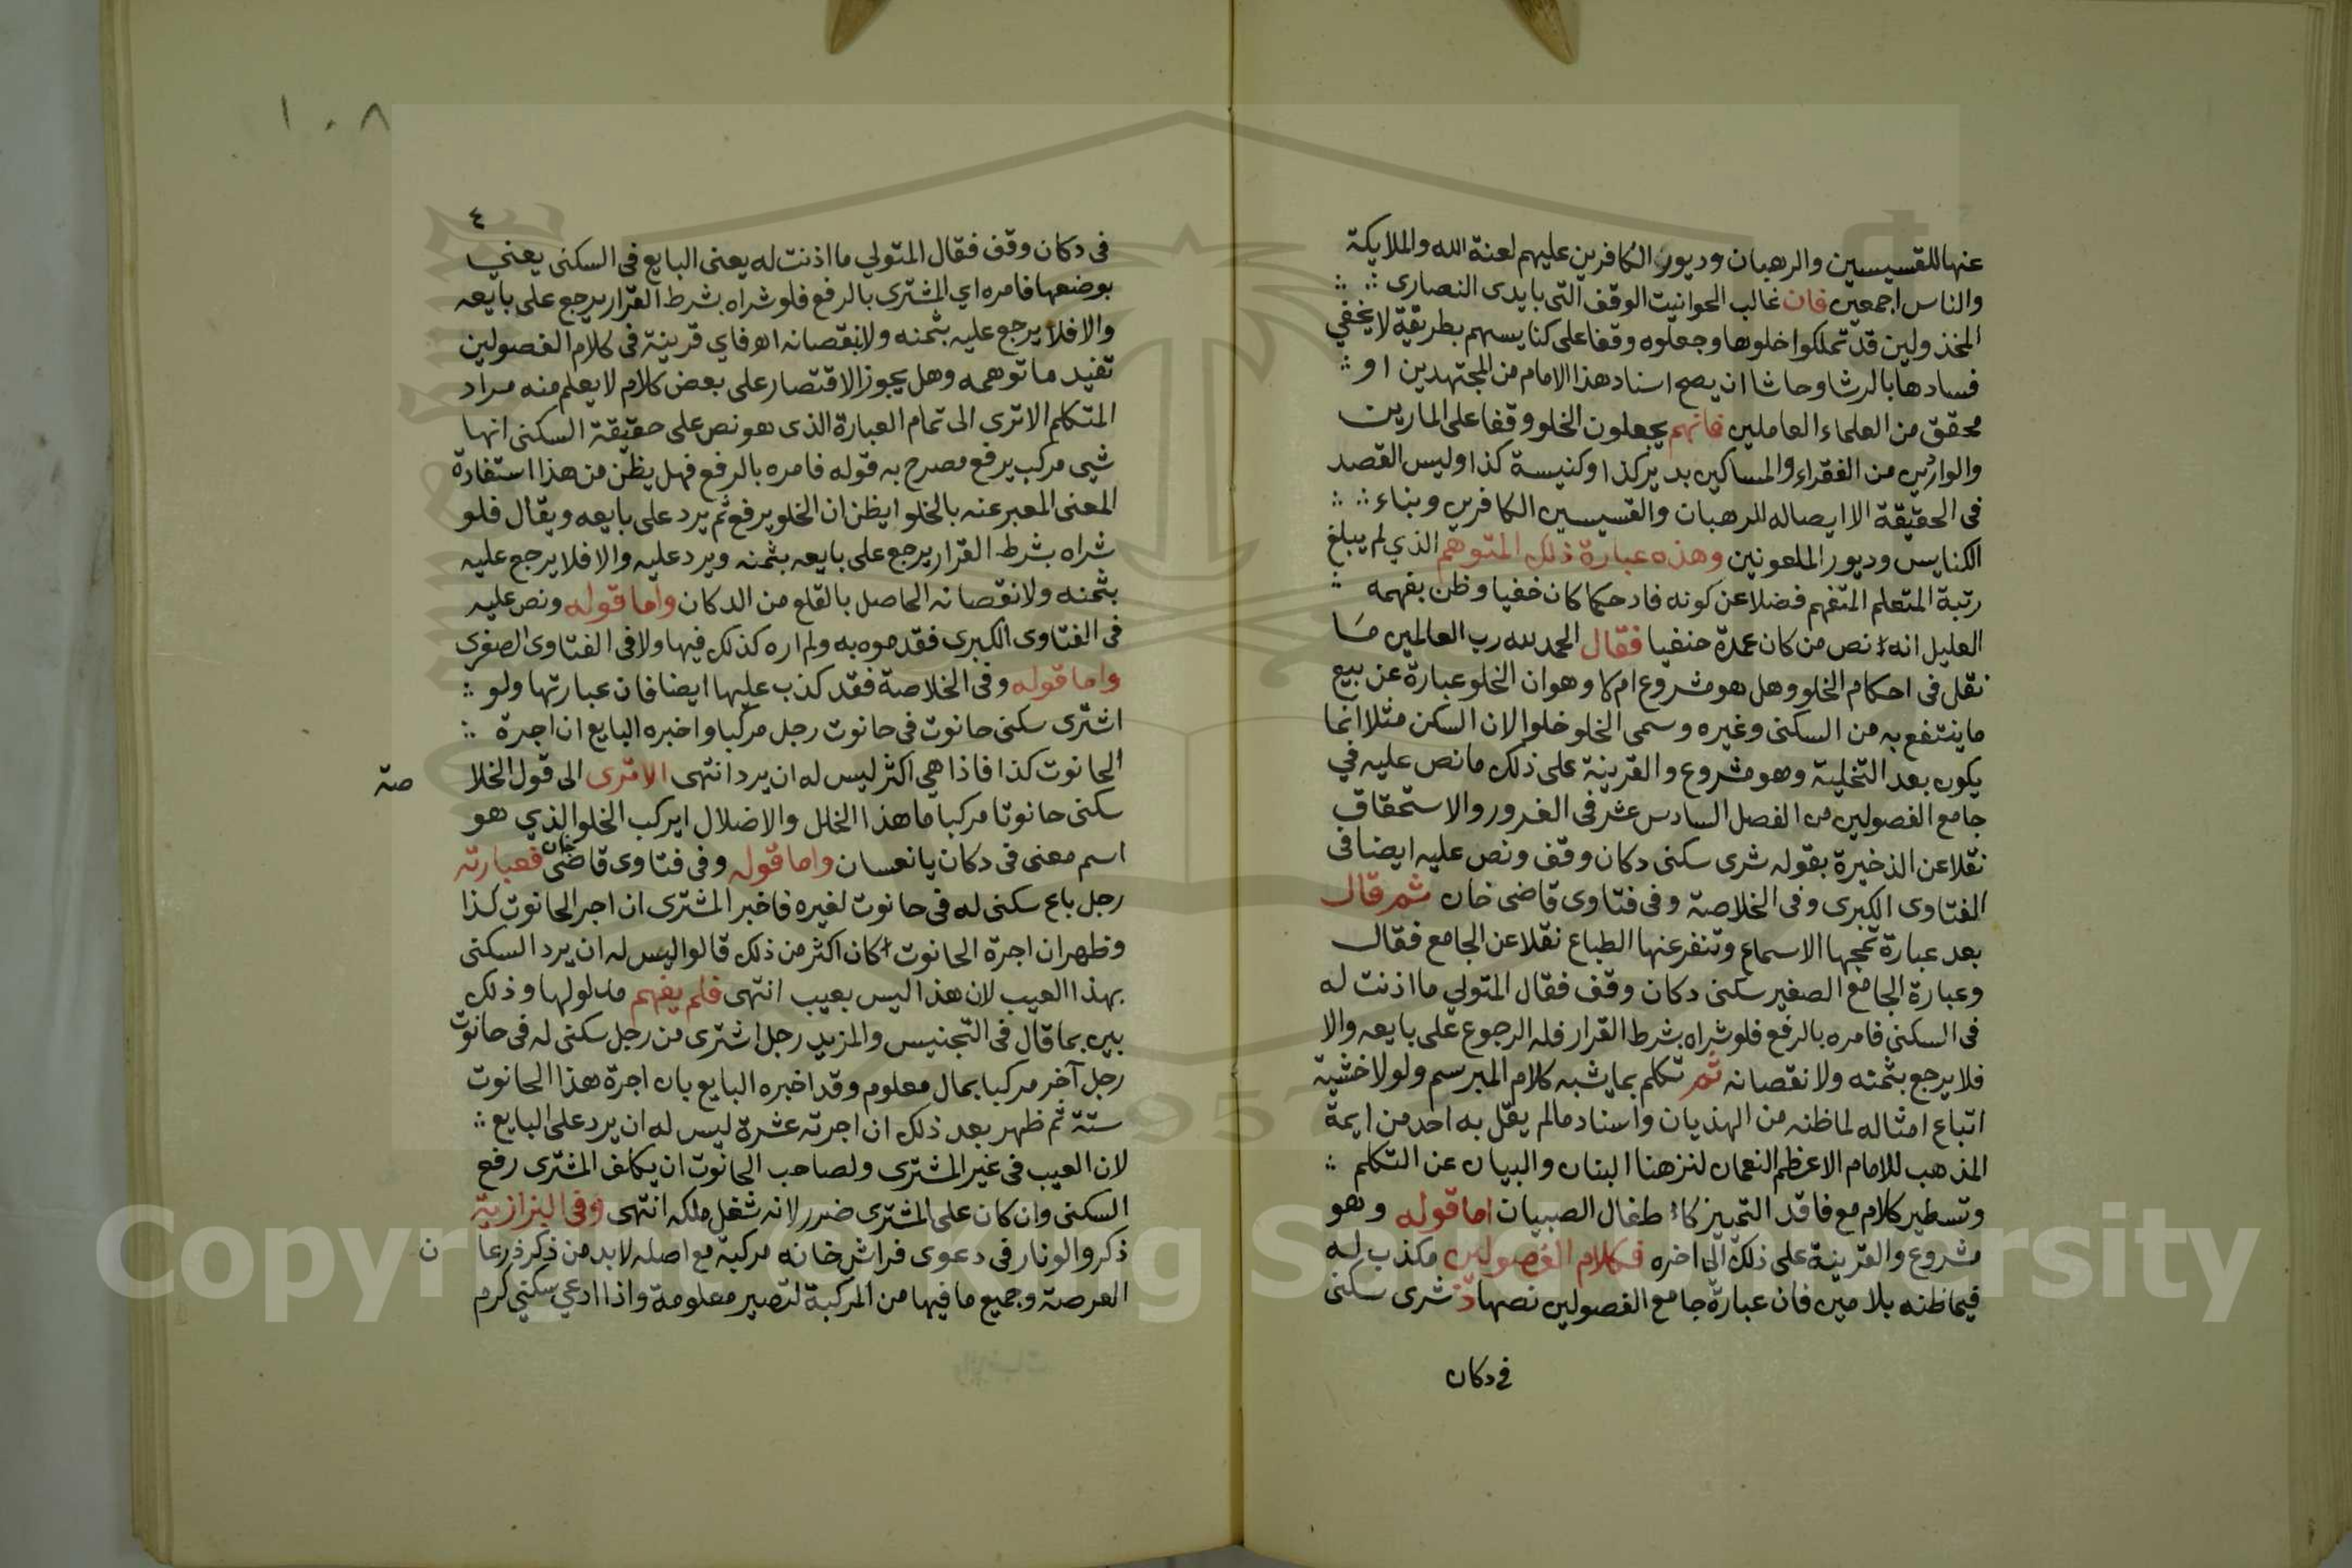 عنها للقسيسين والرهبان وديور الكافرين عليهم لعنة الله والملايكة
والناس اجمعين فان غالب الحوانيت الوقف التى بايدى النصارى
المخذولين قد تملكوا خلوها وجعلوه وقفا على كنايسهم بطريقة لا يخفي
فسادها بالرشا وحاشا ان يصح اسناد هذا الامام من المجتهدين او
محقق من العلماء العاملين فانهم يجعلون الخلو وقفا على المارين
والواردين من الفقراء والمساكين بدير كذا وكنيسة كذا وليس القصد
فى الحقيقة الا ايصاله للرهبان والقسيسين الكافرين وبناء
الكنايس وديور الملعونين وهذه عبارة ذلك المتوهم الذي لم يبلغ
رتبة المتعلم المتفهم فضلا عن كونه فاد حكما كان خفيا وظن بفهمه
العليل انه نص من كان عمدة حنفيا فقال الحمد لله رب العالمين ما
نقل فى احكام الخلو وهل هو مشروع ام لا وهو ان الخلو عبارة عن بيع
ما ينتفع به من السكنى وغيره وسمى الخلو خلوا لان السكن مثلا انما
يكون بعد التخلية وهو مشروع والقرينة على ذلك ما نص عليه في
جامع الفصولين من الفصل السادس عشر فى الغرور والاستحقاق
نقلا عن الذخيرة بقوله شرى سكنى دكان وقف ونص عليه ايضا فى
الفتاوى الكبرى وفى الخلاصة وفى فتاوى قاضى خان ثم قال
بعد عبارة تمجها الاسماع وتنفر عنها الطباع نقلا عن الجامع فقال
وعبارة الجامع الصغير سكنى دكان وقف فقال المتولي ما اذنت له
فى السكنى فامره بالرفع فلو شراه بشرط القرار فله الرجوع على بايعه والا
فلا يرجع بثمنه ولا نقصانه ثم تكلم بما يشبه كلام المبرسم ولولا خشية
اتباع امثاله لما ظنه من الهذيان واسناد ما لم يقل به احد من ايمة
المذهب للامام الاعظم النعمان لنزهنا البنان والبيان عن التكلم
وتسطير كلام مع فاقد التمييز كاطفال الصبيان اما قوله وهو
مشروع والقرينة على ذلك الى اخره فكلام الفصولين مكذب له
فيما ظنه بلا مين فان عبارة جامع الفصولين نصها شرى سكنى
فى دكان
١٠٨
٤
فى دكان وقف فقال المتولي ما اذنت له يعنى البايع فى السكنى يعني
بوضعها فامره اي المشترى بالرفع فلو شراه بشرط القرار يرجع على بايعه
والا فلا يرجع عليه بثمنه ولا بنقصانه اهـ فاي قرينة فى كلام الفصولين
تفيد ما توهمه وهل يجوز الاقتصار على بعض كلام لا يعلم منه مراد
المتكلم الا ترى الى تمام العبارة الذى هو نص على حقيقة السكنى انها
شيى مركب يرفع مصرح به قوله فامره بالرفع فهل يظن من هذا استفادة
المعنى المعبر عنه بالخلو ايظن ان الخلو يرفع ثم يرد على بايعه ويقال فلو
شراه بشرط القرار يرجع على بايعه بثمنه ويرد عليه والا فلا يرجع عليه
بثمنه ولا نقصانه الحاصل بالقلع من الدكان واما قوله ونص عليه
فى الفتاوى الكبرى فقد موه به ولم اره كذلك فيها ولا فى الفتاوى الصغرى
واما قوله وفى الخلاصة فقد كذب عليها ايضا فان عبارتها ولو
اشترى سكنى حانوت فى حانوت رجل مركبا واخبره البايع ان اجرة
الحانوت كذا فاذا هي اكثر ليس له ان يرد انتهى الا ترى الى قول الخلا صة
سكنى حانوتا مركبا ما هذا الخلل والاضلال ايركب الخلو الذي هو
اسم معنى فى دكان يا نعسان واما قوله وفى فتاوى قاضى خان فعبارته
رجل باع سكنى له فى حانوت لغيره فاخبر المشترى ان اجر الحانوت كذا
وظهر ان اجرة الحانوت كان اكثر من ذلك قالوا ليس له ان يرد السكنى
بهذا العيب لان هذا ليس بعيب انتهى فلم يفهم مدلولها وذلك
بين بما قال فى التجنيس والمزيد رجل اشترى من رجل سكنى له فى حانوت
رجل آخر مركبا بمال معلوم وقد اخبره البايع بان اجرة هذا الحانوت
ستة ثم ظهر بعد ذلك ان اجرته عشرة ليس له ان يرد على البايع
لان العيب فى غير المشترى ولصاحب الحانوت ان يكلف المشترى رفع
السكنى وان كان على المشترى ضرر لانه شغل ملكه انتهى وفى البزازية
ذكر والونار فى دعوى فراش خانه مركبة مع اصله لا بد من ذكر ذرعا ن
العرصة وجميع ما فيها من المركبة لتصير معلومة واذا ادعي سكني كرم
Copyright © King Saud University
1957